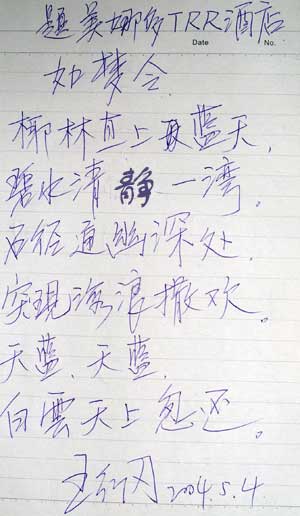 题美娜多TRR酒店
Date No.
如梦令
椰林直上再蓝天，
碧水清静一湾。
石径通幽深处，
实现海浪撒欢。
天蓝、天蓝，
白雲天上忽还。
2004.5.4